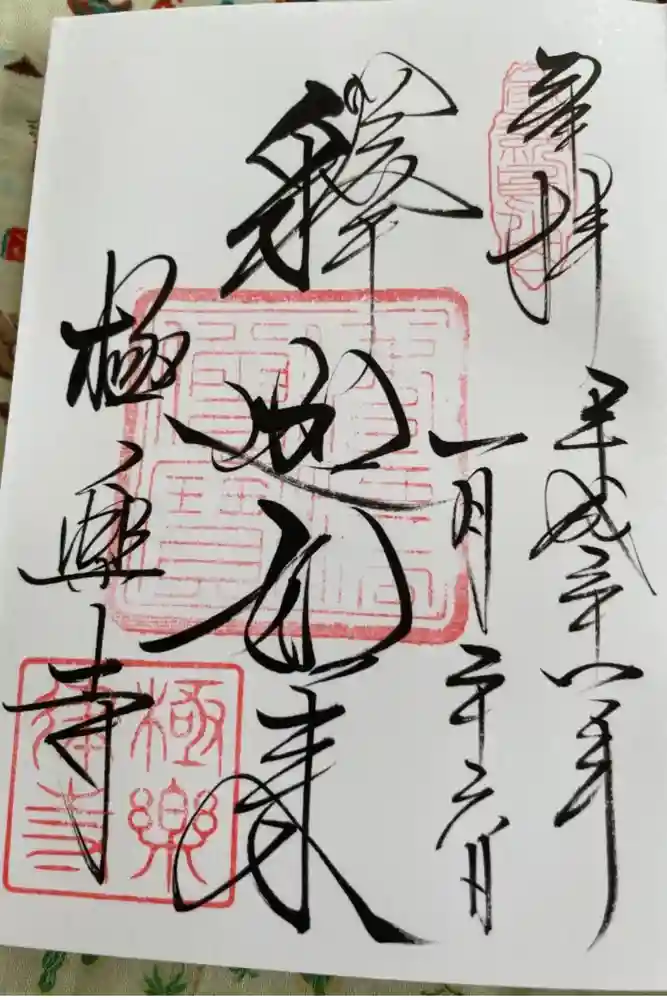 奉拝
平成二十八年
一月二十六日
釋迦如来
極樂寺
極樂
律寺